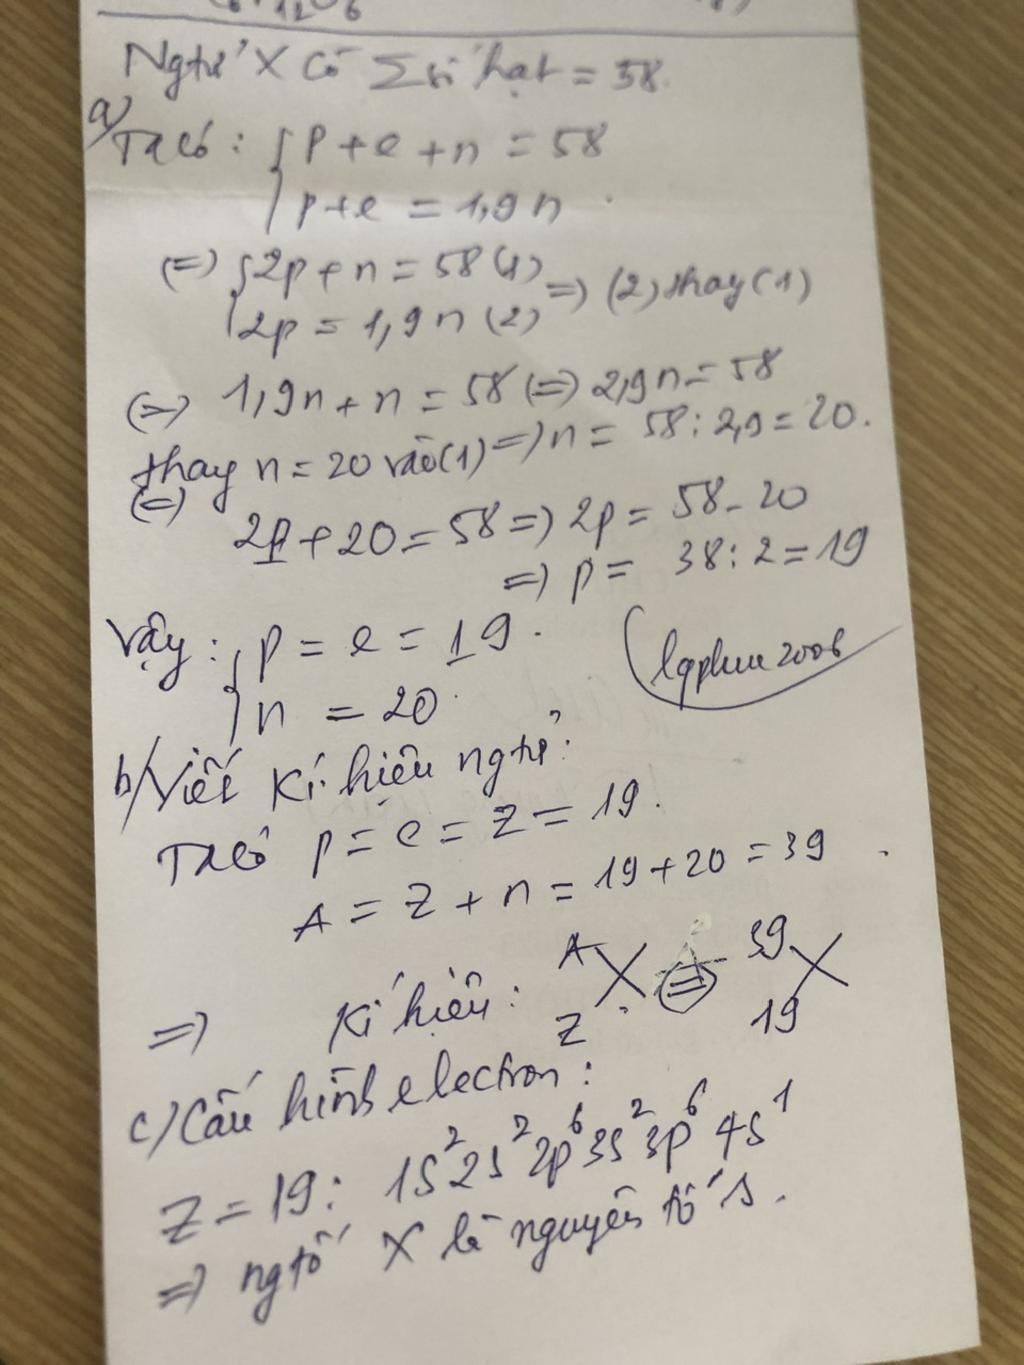 Ngtử X có Σ số hạt = 58.
a) Ta có: { p + e + n = 58
p + e = 1,9 n
(=) { 2p + n = 58 (1)
2p = 1,9 n (2) => (2) thay (1)
(=) 1,9n + n = 58 (=) 2,9n = 58
=> n = 58 : 2,9 = 20.
thay n = 20 vào (1)
(=) 2p + 20 = 58 => 2p = 58 - 20
=> p = 38 : 2 = 19
Vậy: { p = e = 19.
n = 20.
lqphuc2006
b) Viết kí hiệu ngtử:
Ta có p = e = Z = 19.
A = Z + n = 19 + 20 = 39
=> Kí hiệu: ᴬ_Z X (=) ³⁹₁₉X
c) Cấu hình electron:
Z = 19: 1s² 2s² 2p⁶ 3s² 3p⁶ 4s¹
=> ngtố X là nguyên tố s.